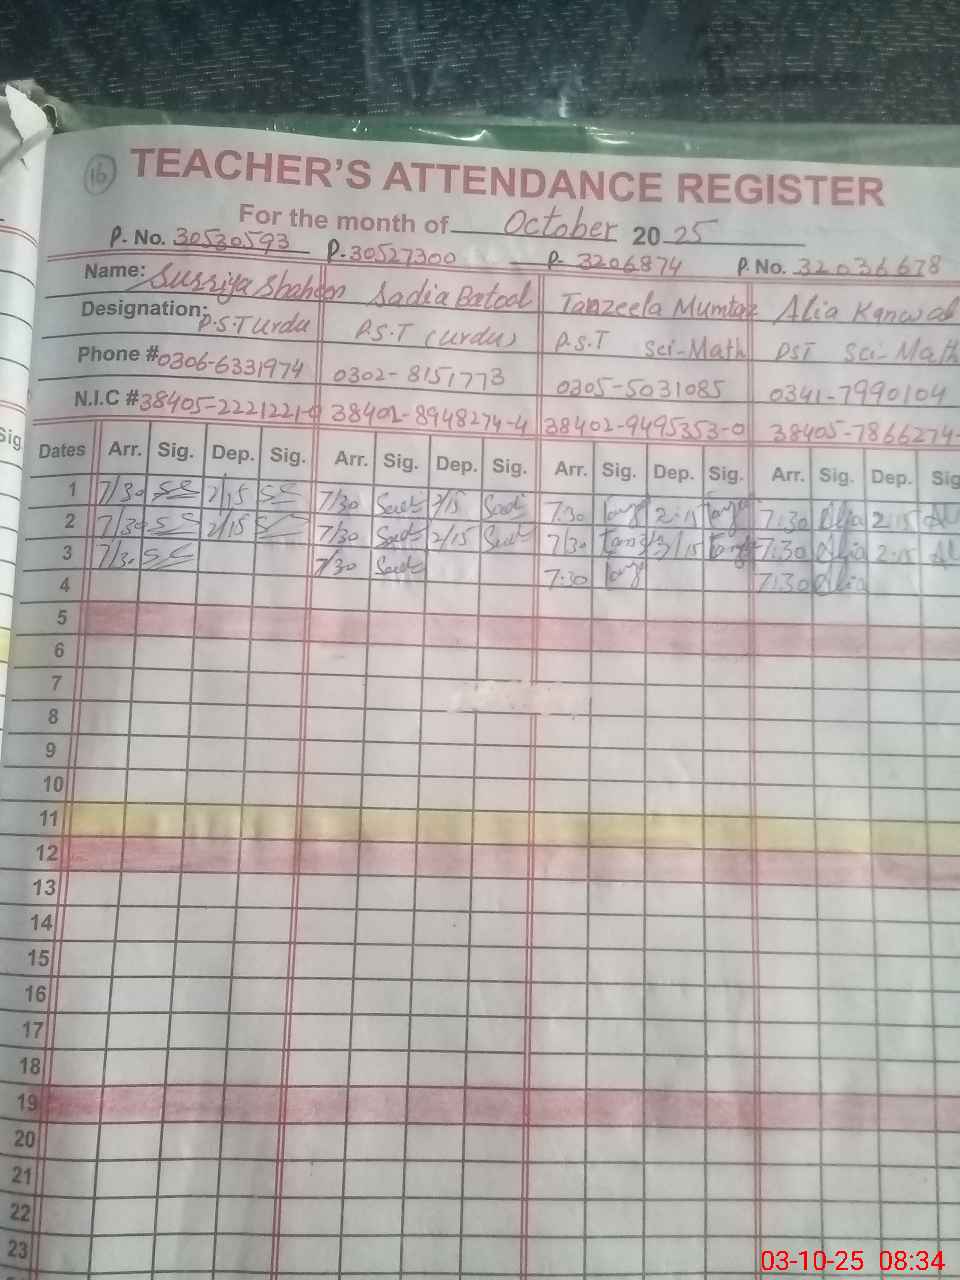 16
TEACHER'S ATTENDANCE REGISTER
For the month of October 2025
P. No. 30530593 P-30527300 P- 3206874 P. No. 32036678
Name: Surriya Shaheen Sadia Batool Tanzeela Mumtaz Alia Kanwal
Designation: P.S.T Urdu P.S.T (Urdu) P.S.T Sci-Math PST Sci-Math
Phone # 0306-6331974 0302-8151773 0305-5031085 0341-7990104
N.I.C # 38405-2221221-0 38401-8948274-4 38402-9495353-0 38405-7866274-
Dates Arr. Sig. Dep. Sig. Arr. Sig. Dep. Sig. Arr. Sig. Dep. Sig. Arr. Sig. Dep. Sig
1 7/30 SS 2/15 SS 7/30 2/15 7:30 2:15 7:30 Alia 2:15
2 7/30 SS 2/15 7/30 2/15 7/30 7:30 Alia 2:15
3 7/30 SS 7/30 7:30 7:30 Alia
4
5
6
7
8
9
10
11
12
13
14
15
16
17
18
19
20
21
22
23
Sig.
03-10-25 08:34